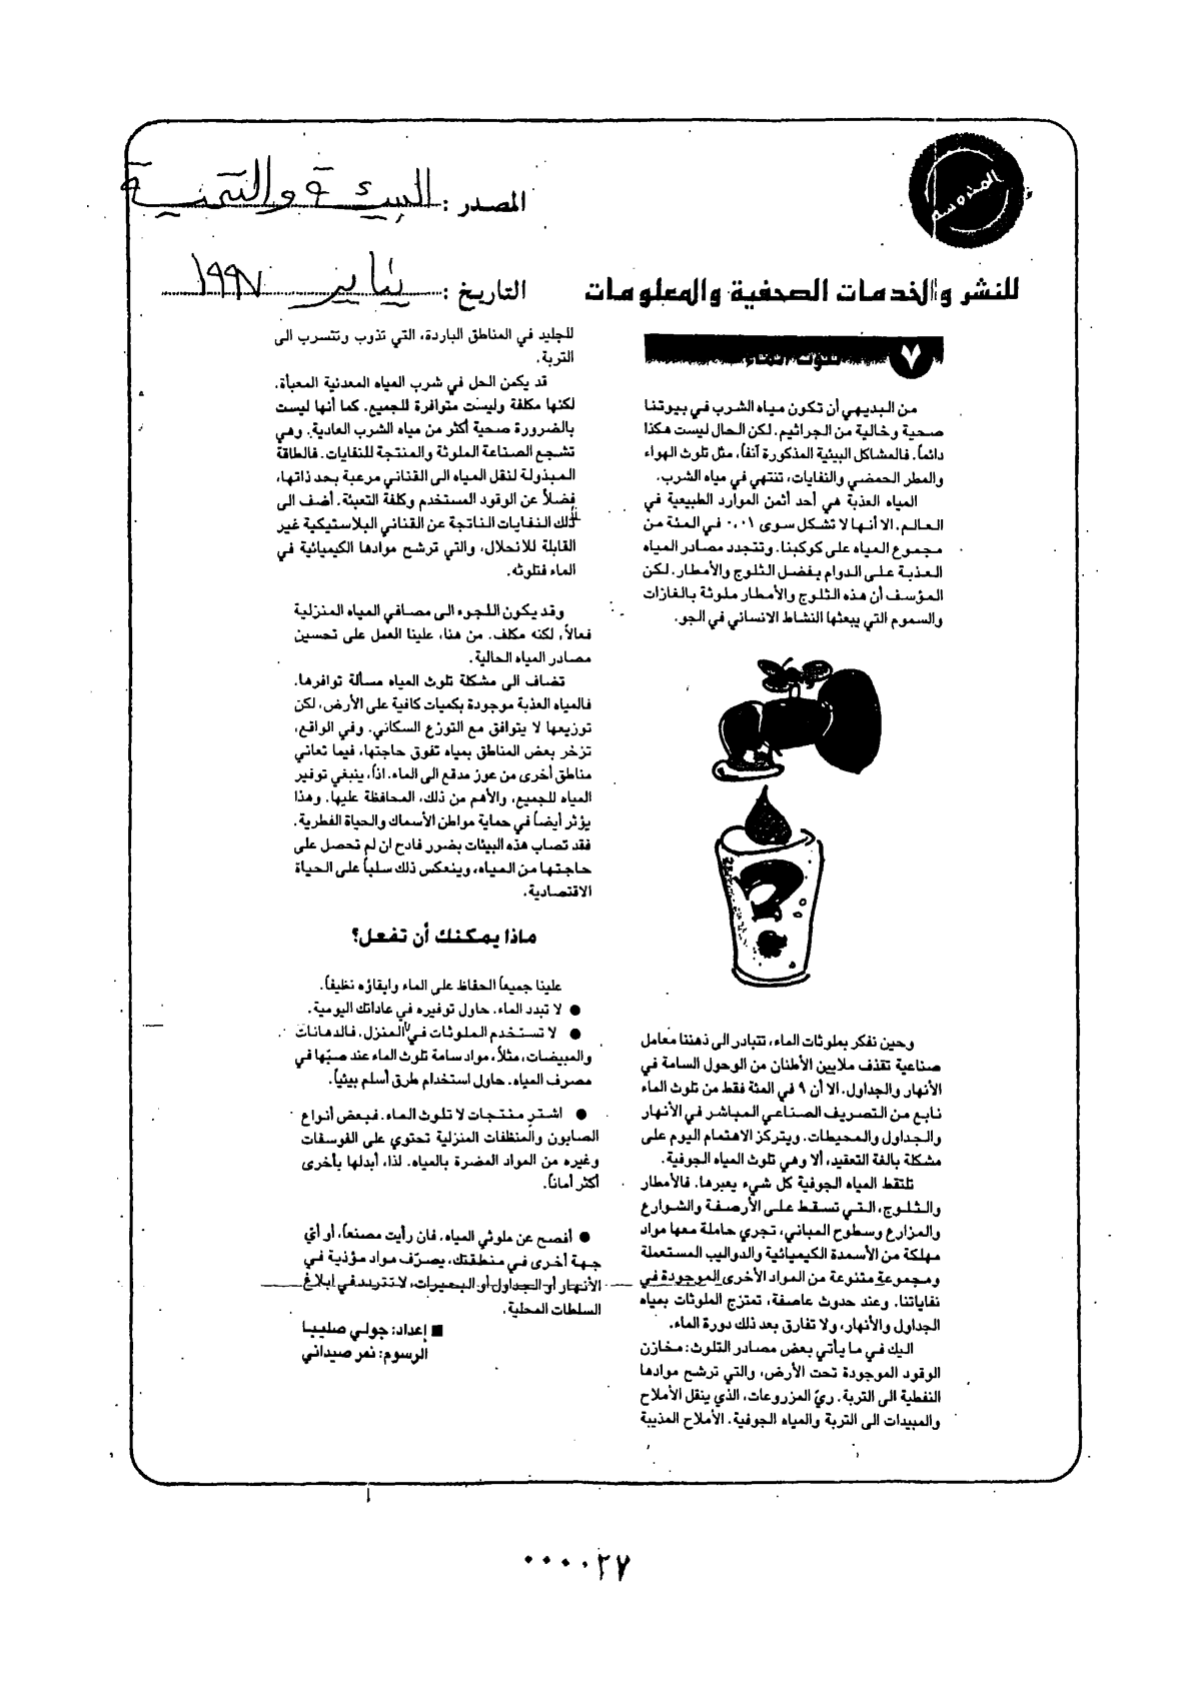 المحروسة
للنشر والخدمات الصحفية والمعلومات
المصدر : البيئة والتنمية
التاريخ : يناير ١٩٩٧
٧ تلوث الماء
من البديهي أن تكون مياه الشرب في بيوتنا
صحية وخالية من الجراثيم. لكن الحال ليست هكذا
دائماً. فالمشاكل البيئية المذكورة آنفاً، مثل تلوث الهواء
والمطر الحمضي والنفايات، تنتهي في مياه الشرب.
المياه العذبة هي أحد أثمن الموارد الطبيعية في
العالم. الا أنها لا تشكل سوى ٠،٠١ في المئة من
مجموع المياه على كوكبنا. وتتجدد مصادر المياه
العذبة على الدوام بفضل الثلوج والأمطار. لكن
المؤسف أن هذه الثلوج والأمطار ملوثة بالغازات
والسموم التي يبعثها النشاط الانساني في الجو.
وحين نفكر بملوثات الماء، تتبادر الى ذهننا معامل
صناعية تقذف ملايين الأطنان من الوحول السامة في
الأنهار والجداول. الا أن ٩ في المئة فقط من تلوث الماء
نابع من التصريف الصناعي المباشر في الأنهار
والجداول والمحيطات. ويتركز الاهتمام اليوم على
مشكلة بالغة التعقيد، ألا وهي تلوث المياه الجوفية.
تلتقط المياه الجوفية كل شيء يعبرها. فالأمطار
والثلوج، التي تسقط على الأرصفة والشوارع
والمزارع وسطوح المباني، تجري حاملة معها مواد
مهلكة من الأسمدة الكيميائية والدواليب المستعملة
ومجموعة متنوعة من المواد الأخرى الموجودة في
نفاياتنا. وعند حدوث عاصفة، تمتزج الملوثات بمياه
الجداول والأنهار، ولا تفارق بعد ذلك دورة الماء.
اليك في ما يأتي بعض مصادر التلوث: مخازن
الوقود الموجودة تحت الأرض، والتي ترشح موادها
النفطية الى التربة. ريّ المزروعات، الذي ينقل الأملاح
والمبيدات الى التربة والمياه الجوفية. الأملاح المذيبة
للجليد في المناطق الباردة، التي تذوب وتتسرب الى
التربة.
قد يكمن الحل في شرب المياه المعدنية المعبأة.
لكنها مكلفة وليست متوافرة للجميع. كما أنها ليست
بالضرورة صحية أكثر من مياه الشرب العادية. وهي
تشجع الصناعة الملوثة والمنتجة للنفايات. فالطاقة
المبذولة لنقل المياه الى القناني مرعبة بحد ذاتها،
فضلاً عن الوقود المستخدم وكلفة التعبئة. أضف الى
ذلك النفايات الناتجة عن القناني البلاستيكية غير
القابلة للانحلال، والتي ترشح موادها الكيميائية في
الماء فتلوثه.
وقد يكون اللجوء الى مصافي المياه المنزلية
فعالاً، لكنه مكلف. من هنا، علينا العمل على تحسين
مصادر المياه الحالية.
تضاف الى مشكلة تلوث المياه مسألة توافرها.
فالمياه العذبة موجودة بكميات كافية على الأرض، لكن
توزيعها لا يتوافق مع التوزع السكاني. وفي الواقع،
تزخر بعض المناطق بمياه تفوق حاجتها، فيما تعاني
مناطق أخرى من عوز مدقع الى الماء. اذاً، ينبغي توفير
المياه للجميع، والأهم من ذلك، المحافظة عليها. وهذا
يؤثر أيضاً في حماية مواطن الأسماك والحياة الفطرية.
فقد تصاب هذه البيئات بضرر فادح ان لم تحصل على
حاجتها من المياه، وينعكس ذلك سلباً على الحياة
الاقتصادية.
ماذا يمكنك أن تفعل؟
علينا جميعاً الحفاظ على الماء وابقاؤه نظيفاً.
● لا تبدد الماء. حاول توفيره في عاداتك اليومية.
● لا تستخدم الملوثات في المنزل. فالدهانات
والمبيضات، مثلاً، مواد سامة تلوث الماء عند صبّها في
مصرف المياه. حاول استخدام طرق أسلم بيئياً.
● اشترِ منتجات لا تلوث الماء. فبعض أنواع
الصابون والمنظفات المنزلية تحتوي على الفوسفات
وغيره من المواد المضرة بالمياه. لذا، أبدلها بأخرى
أكثر أماناً.
● أفصح عن ملوثي المياه. فان رأيت مصنعاً، أو أي
جهة أخرى في منطقتك، يصرّف مواد مؤذية في
الأنهار أو الجداول أو البحيرات، لا تتردد في ابلاغ
السلطات المحلية.
■ إعداد: جولي صليبا
الرسوم: نمر صيداني
٠٠٠٠٢٧